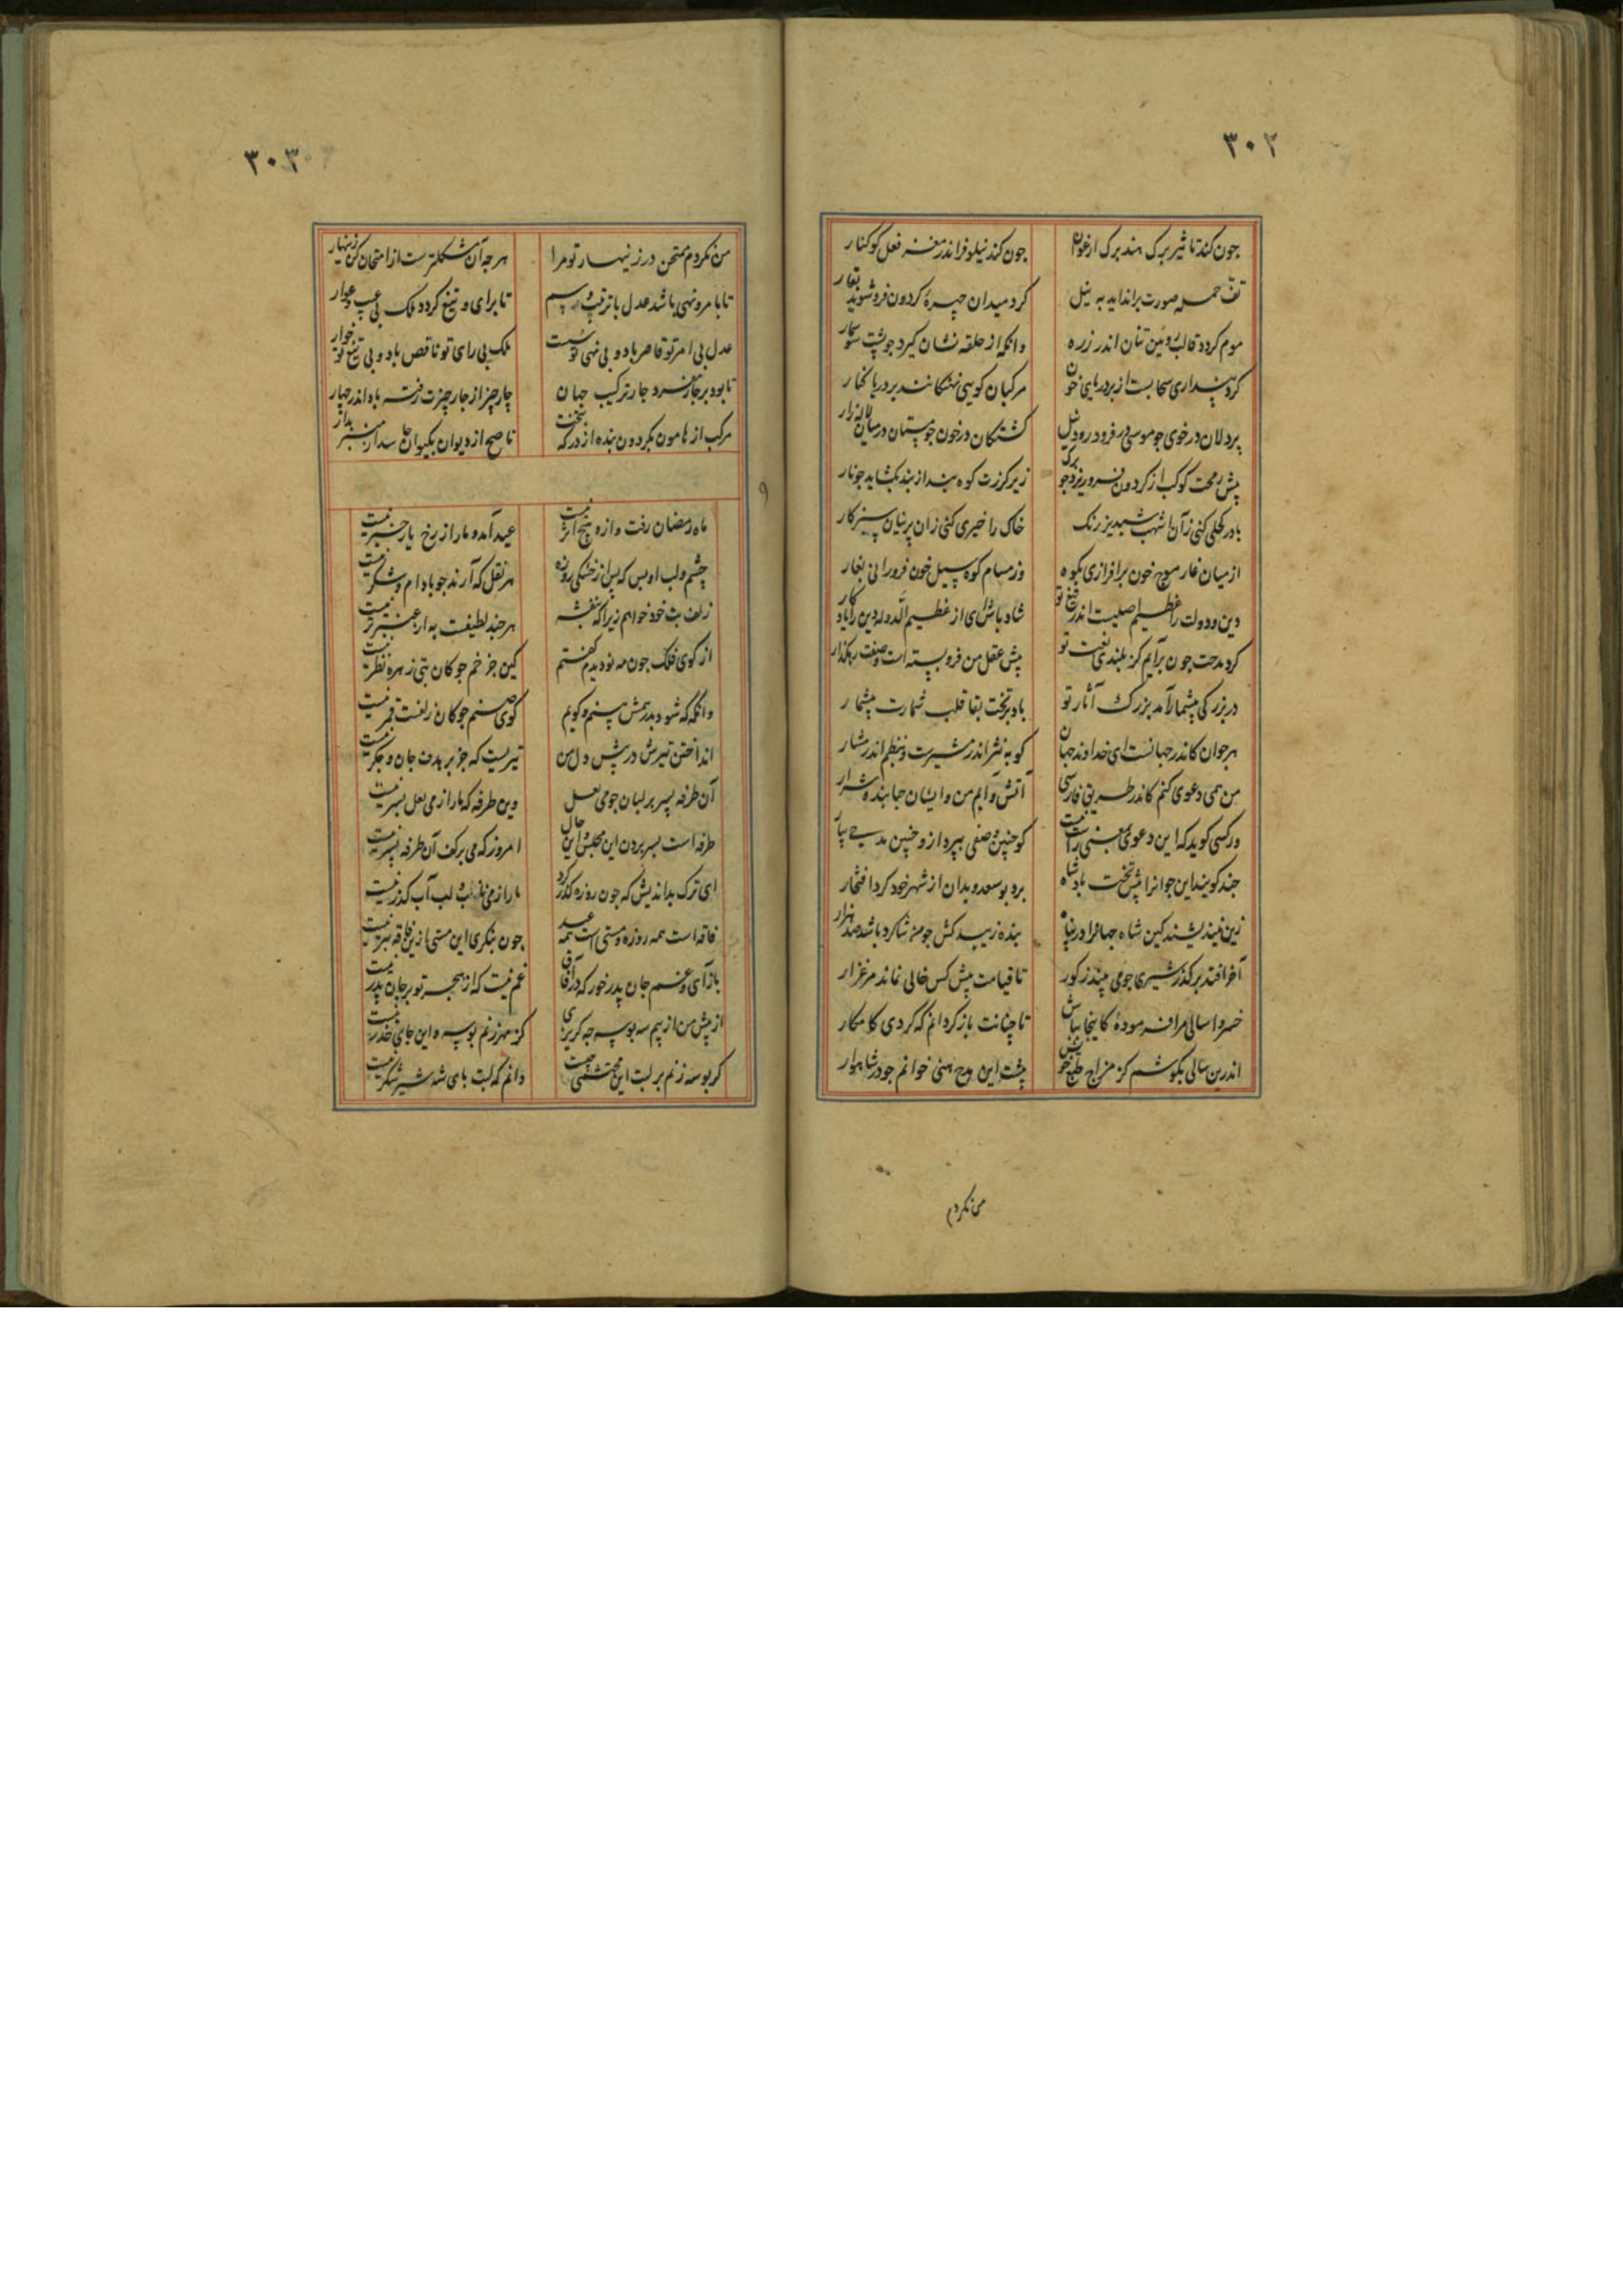 ۳۰۲
جون کند تاثیر برک هند برک ارغوان جون کند نیلوفر اندر مغز فعل کوکنار
تف حمله صورت براندایذ به نیل کرد میدان چهرهٔ کردون فرو شوید بقار
موم کردد قالب رویین تنان اندر زره وانکه از حلقه نشان کیرد جو پشت سوسمار
کرد پنداری سحابست از بر دریای خون مرکبان کویی نهنکانند بر دریا کنار
پردلان در خوی جو موسی در فرود رود نیل کشتکان در خون جو مستان در میان لاله زار
پیش رمحت کوکب از کردون فرو ریزد جو برک زیر کرزت کوه بند از بند بکشاید جو نار
باد را کحلی کنی زان اشهب شبدیز رنک خاک را خیری کنی زان پرنیان سبز کار
از میان غار موج خون برافرازی بکوه وز مسام کوه سیل خون فرو رانی بغار
دین و دولت را عظیم اصلیست اندر تیغ تو شاد باش ای از عظیم الدوله دین را یادکار
کرد مدحت جون برآیم کز بلندی نعت تو پیش عقل من فرو بسته است وصفت رهکذار
در بزرکی بیشمار آمد بزرک آثار تو باد بر تخت بقا قلب شمارت بیشمار
هر جوان کاندر جهانست ای خداوند جهان کو به نثر اندر مشیرست و بنظم اندر مشار
من همی دعوی کنم کاندر طریق فارسی آتش و آبم من و ایشان جهانند و شرار
ور کسی کوید که این دعوی بمعنی راست نیست کو جنین وصفی بپرداز و جنین مدحی بیار
جند کویند این جوانرا پیش تخت بادشاه برد بوسعد و بدان از شهر خود کرد افتخار
زین نیندیشند کین شاه جهانرا در پناه بنده زیبد کش جو من شاکرد باشد صد هزار
آخر افتد بر کذر شیری جو می بیند ز کور تا قیامت پیش کس خالی نماند مرغزار
خسروا سالی مرا فرمودهٔ کاینجا بباش تا جنانت باز کردانم که کردی کامکار
اندرین سالی بکوشم کز مزاج طبع خویش پشت این مدح هنی خوانم جو در شاهوار
من نکردم
۳۰۳
من نکردم ممتحن در زینهار تو مرا هر جه آن مشکلترست از امتحان کن زینهار
تا بامر و نهی باشد عدل با ترتیب و رسم تا برای و تیغ کردد ملک بی عیب و عوار
عدل بی امر تو قاصر باد و بی نهی تو سست ملک بی رای تو ناقص باد و بی تیغ تو خوار
تا بود بر جار عنصر جار ترکیب جهان جار جیز از جار جیزت رفته باد اندر جهار
مرکب از هامون بکردون بنده از درکه بتخت ناصح از دیوان بکیوان حاسد از منبر بدار
ماه رمضان رفت و ازو هیج اثر نیست عید آمد و ما را ز رخ یار خبر نیست
چشم و لب او بس که پس از خشکی روزه هر نقل که آرند جو بادام و شکر نیست
زلف بت خود خواهم زیرا که بنفشه هر جند لطیفست به از عنبر تر نیست
از کوی فلک جون مه نو دیدم کفتم کین جز خم جوکان بتی زهره نظر نیست
وانکه که شود بدر همش بینم و کویم کوی صنم جوکان زلفست قمر نیست
انداختن تیرش در پیش دل من تیریست که جز بر هدف جان و جکر نیست
آن طرفه پسر بر لبان جو می لعل وین طرفه که ما را ز می لعل بسر نیست
طرفه است بسر بردن این مجلس و این حال امروز که می بر کف آن طرفه پسر نیست
ای ترک بداندیش که جون روزه کذر کرد ما را ز می ناب و لب آب کذر نیست
فاقه است همه روزه و مستی است همه عید جون بنکری این مستی ازین فاقه بتر نیست
بازآی و غم جان پدر خور که در آفاق غم نیست که از هجر تو بر جان پدر نیست
از پیش من از بیم سه بوسه جه کریزی کز مهر زنم بوسه و این جای حذر نیست
کر بوسه زنم بر لبت این محتشمی جیست دانم که لبت بای شه شیر شکر نیست